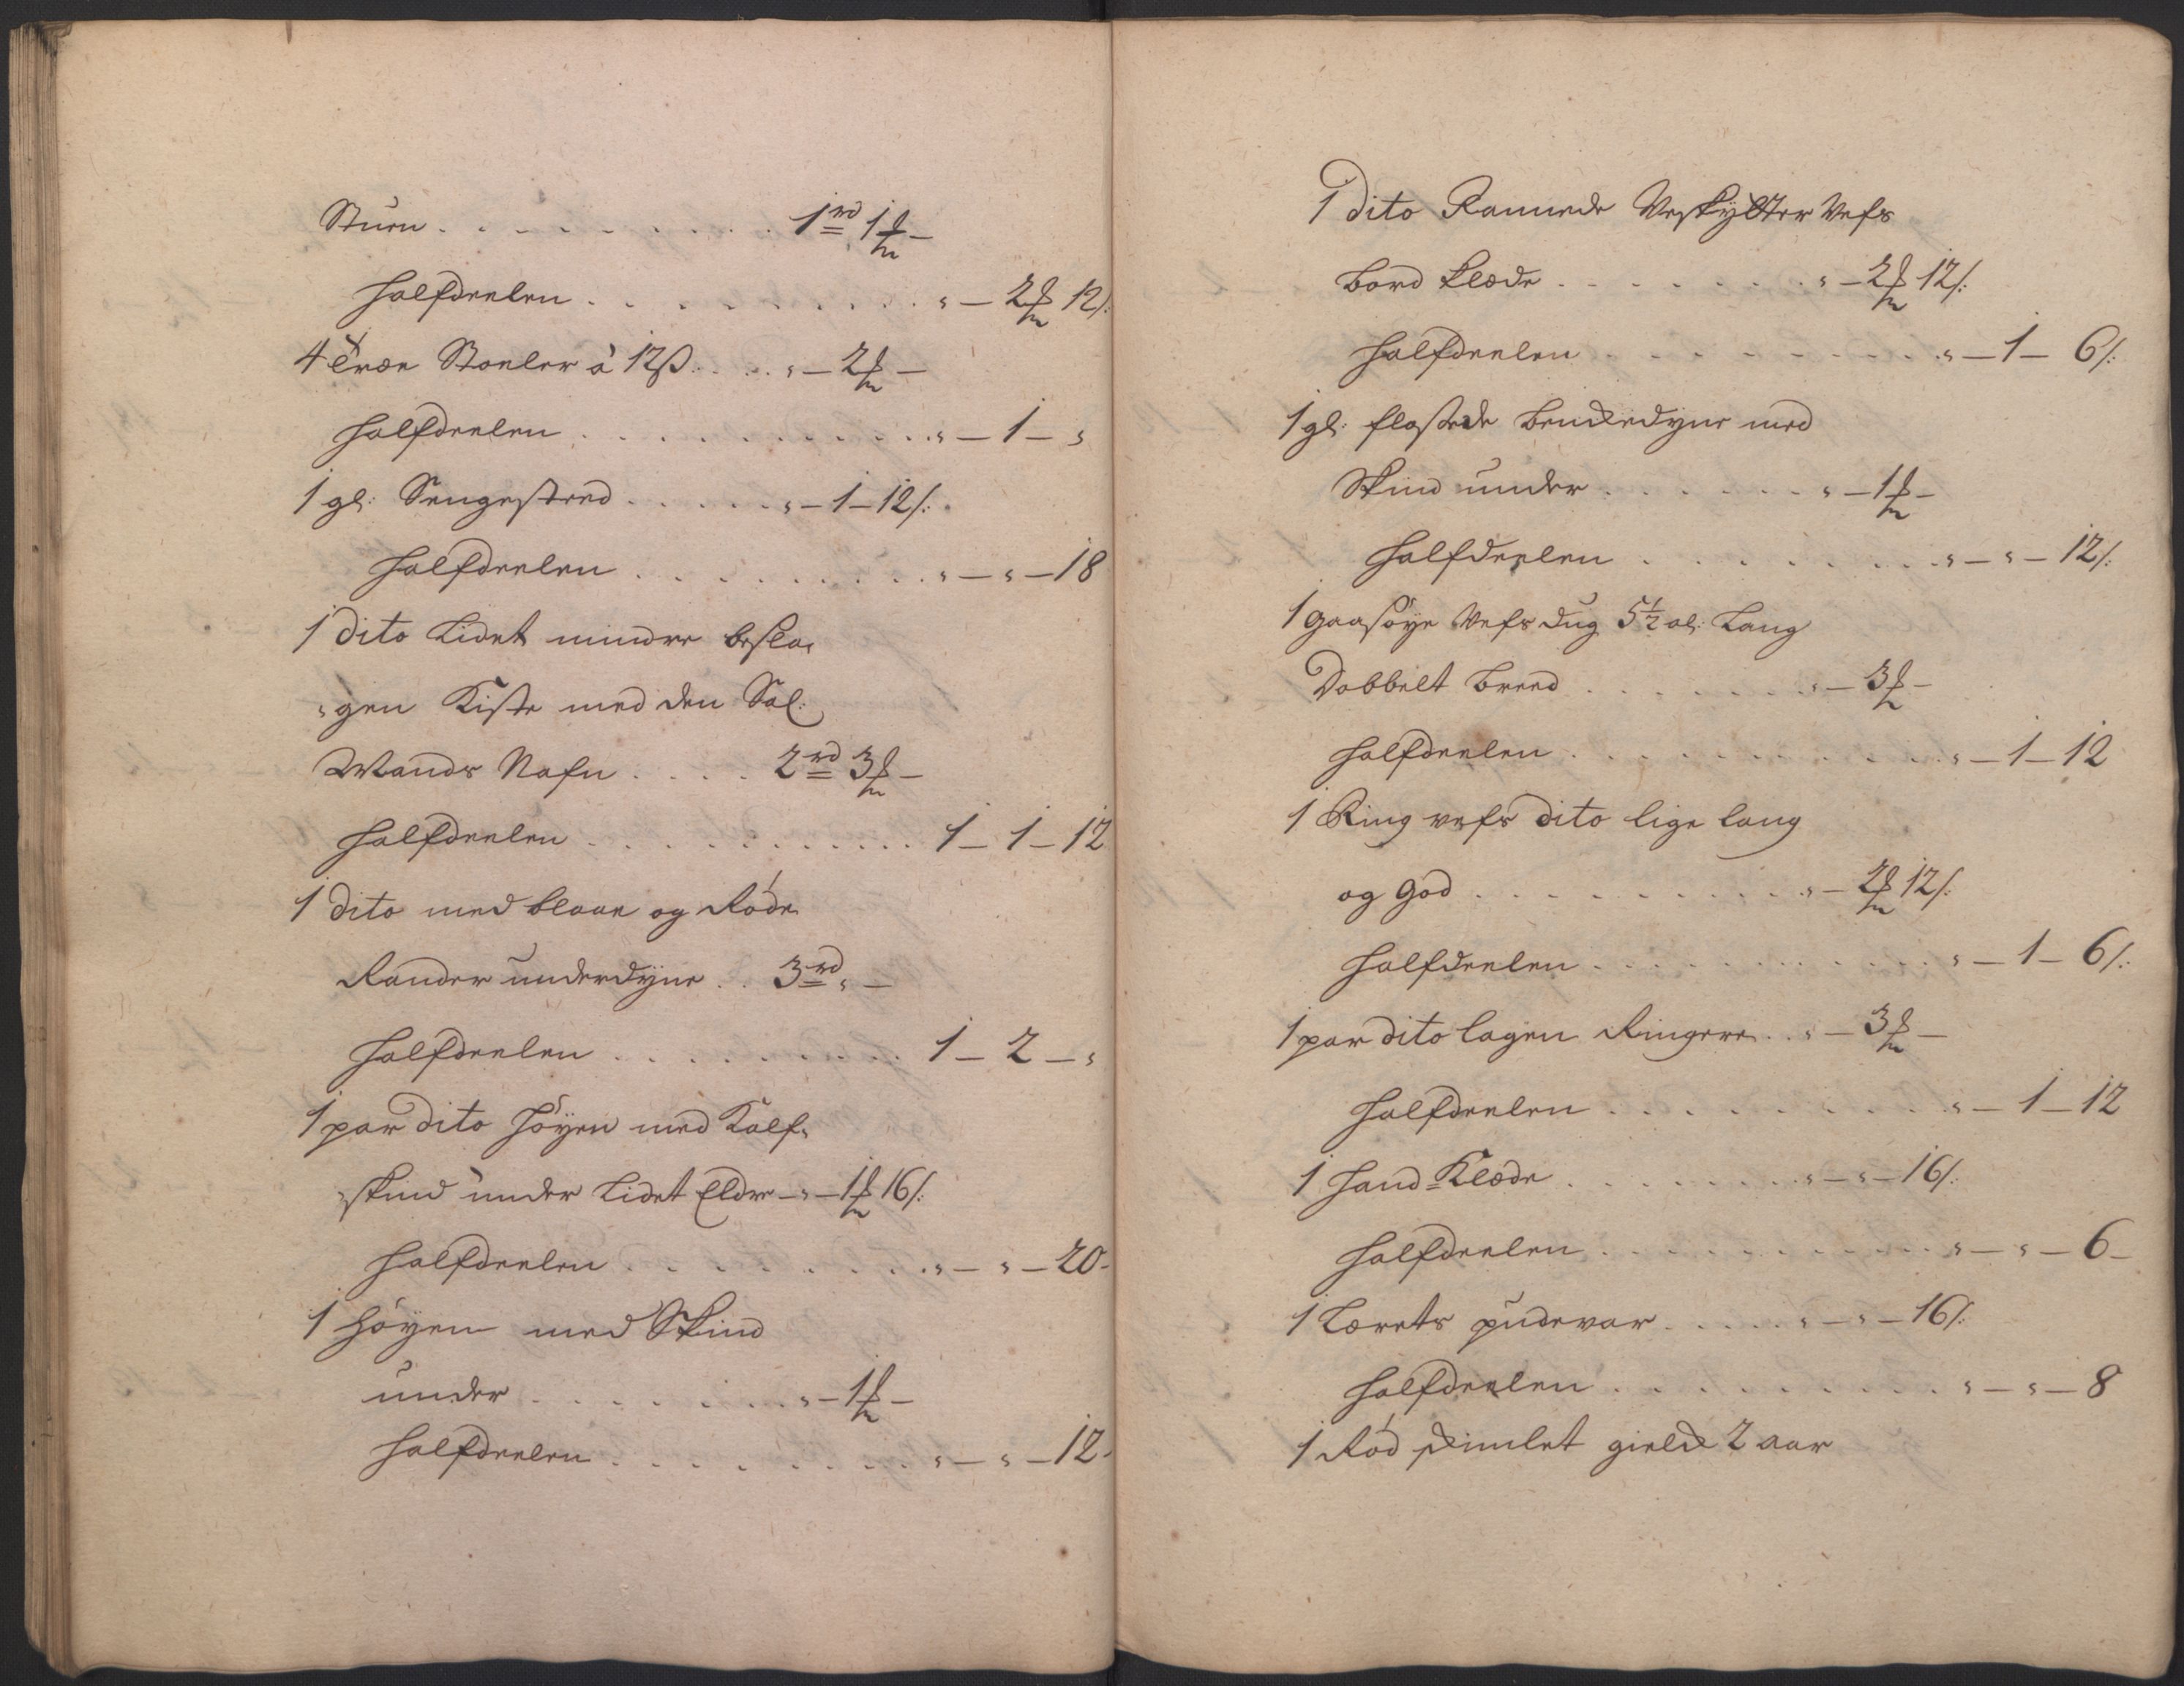 Stuen . . . . . . . . . . 1 rd 1 ℔ –
Halfdeelen . . . . . . . . . . „ – 2 ℔ 12 /:
4 Træe Stoeler à 12 ß . . . . „ – 2 ℔ –
Halfdeelen . . . . . . . . . . . . „ – 1 – „
1 gl: Sengested . . . . . „ – 1 – 12 /:
Halfdeelen . . . . . . . . . . „ – „ – 18
1 dito Lidet mindre besla„
„gen Kiste med den Sal:
Mands Nafn . . . . 2 rd 3 ℔ –
Halfdeelen . . . . . . . . . . . . 1 – 1 – 12
1 dito med blaae og Røde
Rander underdyne . . 3 rd „ –
Halfdeelen . . . . . . . . . . 1 – 2 – „
1 par dito Høyen med Kalf„
„skind under Lidet Eldre – „ – 1 ℔ 16 /:
Halfdeelen . . . . . . . . . . „ – „ – 20 –
1 Høyen med Skind
under . . . . . . . . „ – 1 ℔ –
Halfdeelen . . . . . . . . . „ – „ – 12 –
1 dito Ramede Vefs
bord Klæde . . . . . . . . „ – 2 ℔ 12 /:
Halfdeelen . . . . . . . . . . „ – 1 – 6 /:
1 gl: flossede benckedyne med
Skind under . . . . . . „ – 1 ℔ –
Halfdeelen . . . . . . . . . . „ – „ – 12 /:
1 Gaasøye Vefs dug 5½ al: Lang
Dobbelt breed . . . . . . . „ – 3 ℔ –
Halfdeelen . . . . . . . . . . . . „ – 1 – 12
1 Ring vefs dito lige lang
og god . . . . . . . . . . . „ – 2 ℔ 12 /:
Halfdeelen . . . . . . . . . . . . „ – 1 – 6 /:
1 par dito lagen Ringere . . „ – 3 ℔ –
Halfdeelen . . . . . . . . . . „ – 1 – 12
1 Hand=Klæde . . . . . . . . „ – „ – 16 /:
Halfdeelen . . . . . . . . . . . „ – „ – 6 –
1 Lærets pudevar . . . . . „ – „ – 16 /:
Halfdeelen . . . . . . . . . . „ – „ – 8
1 Rød skimlet gield 2 aar